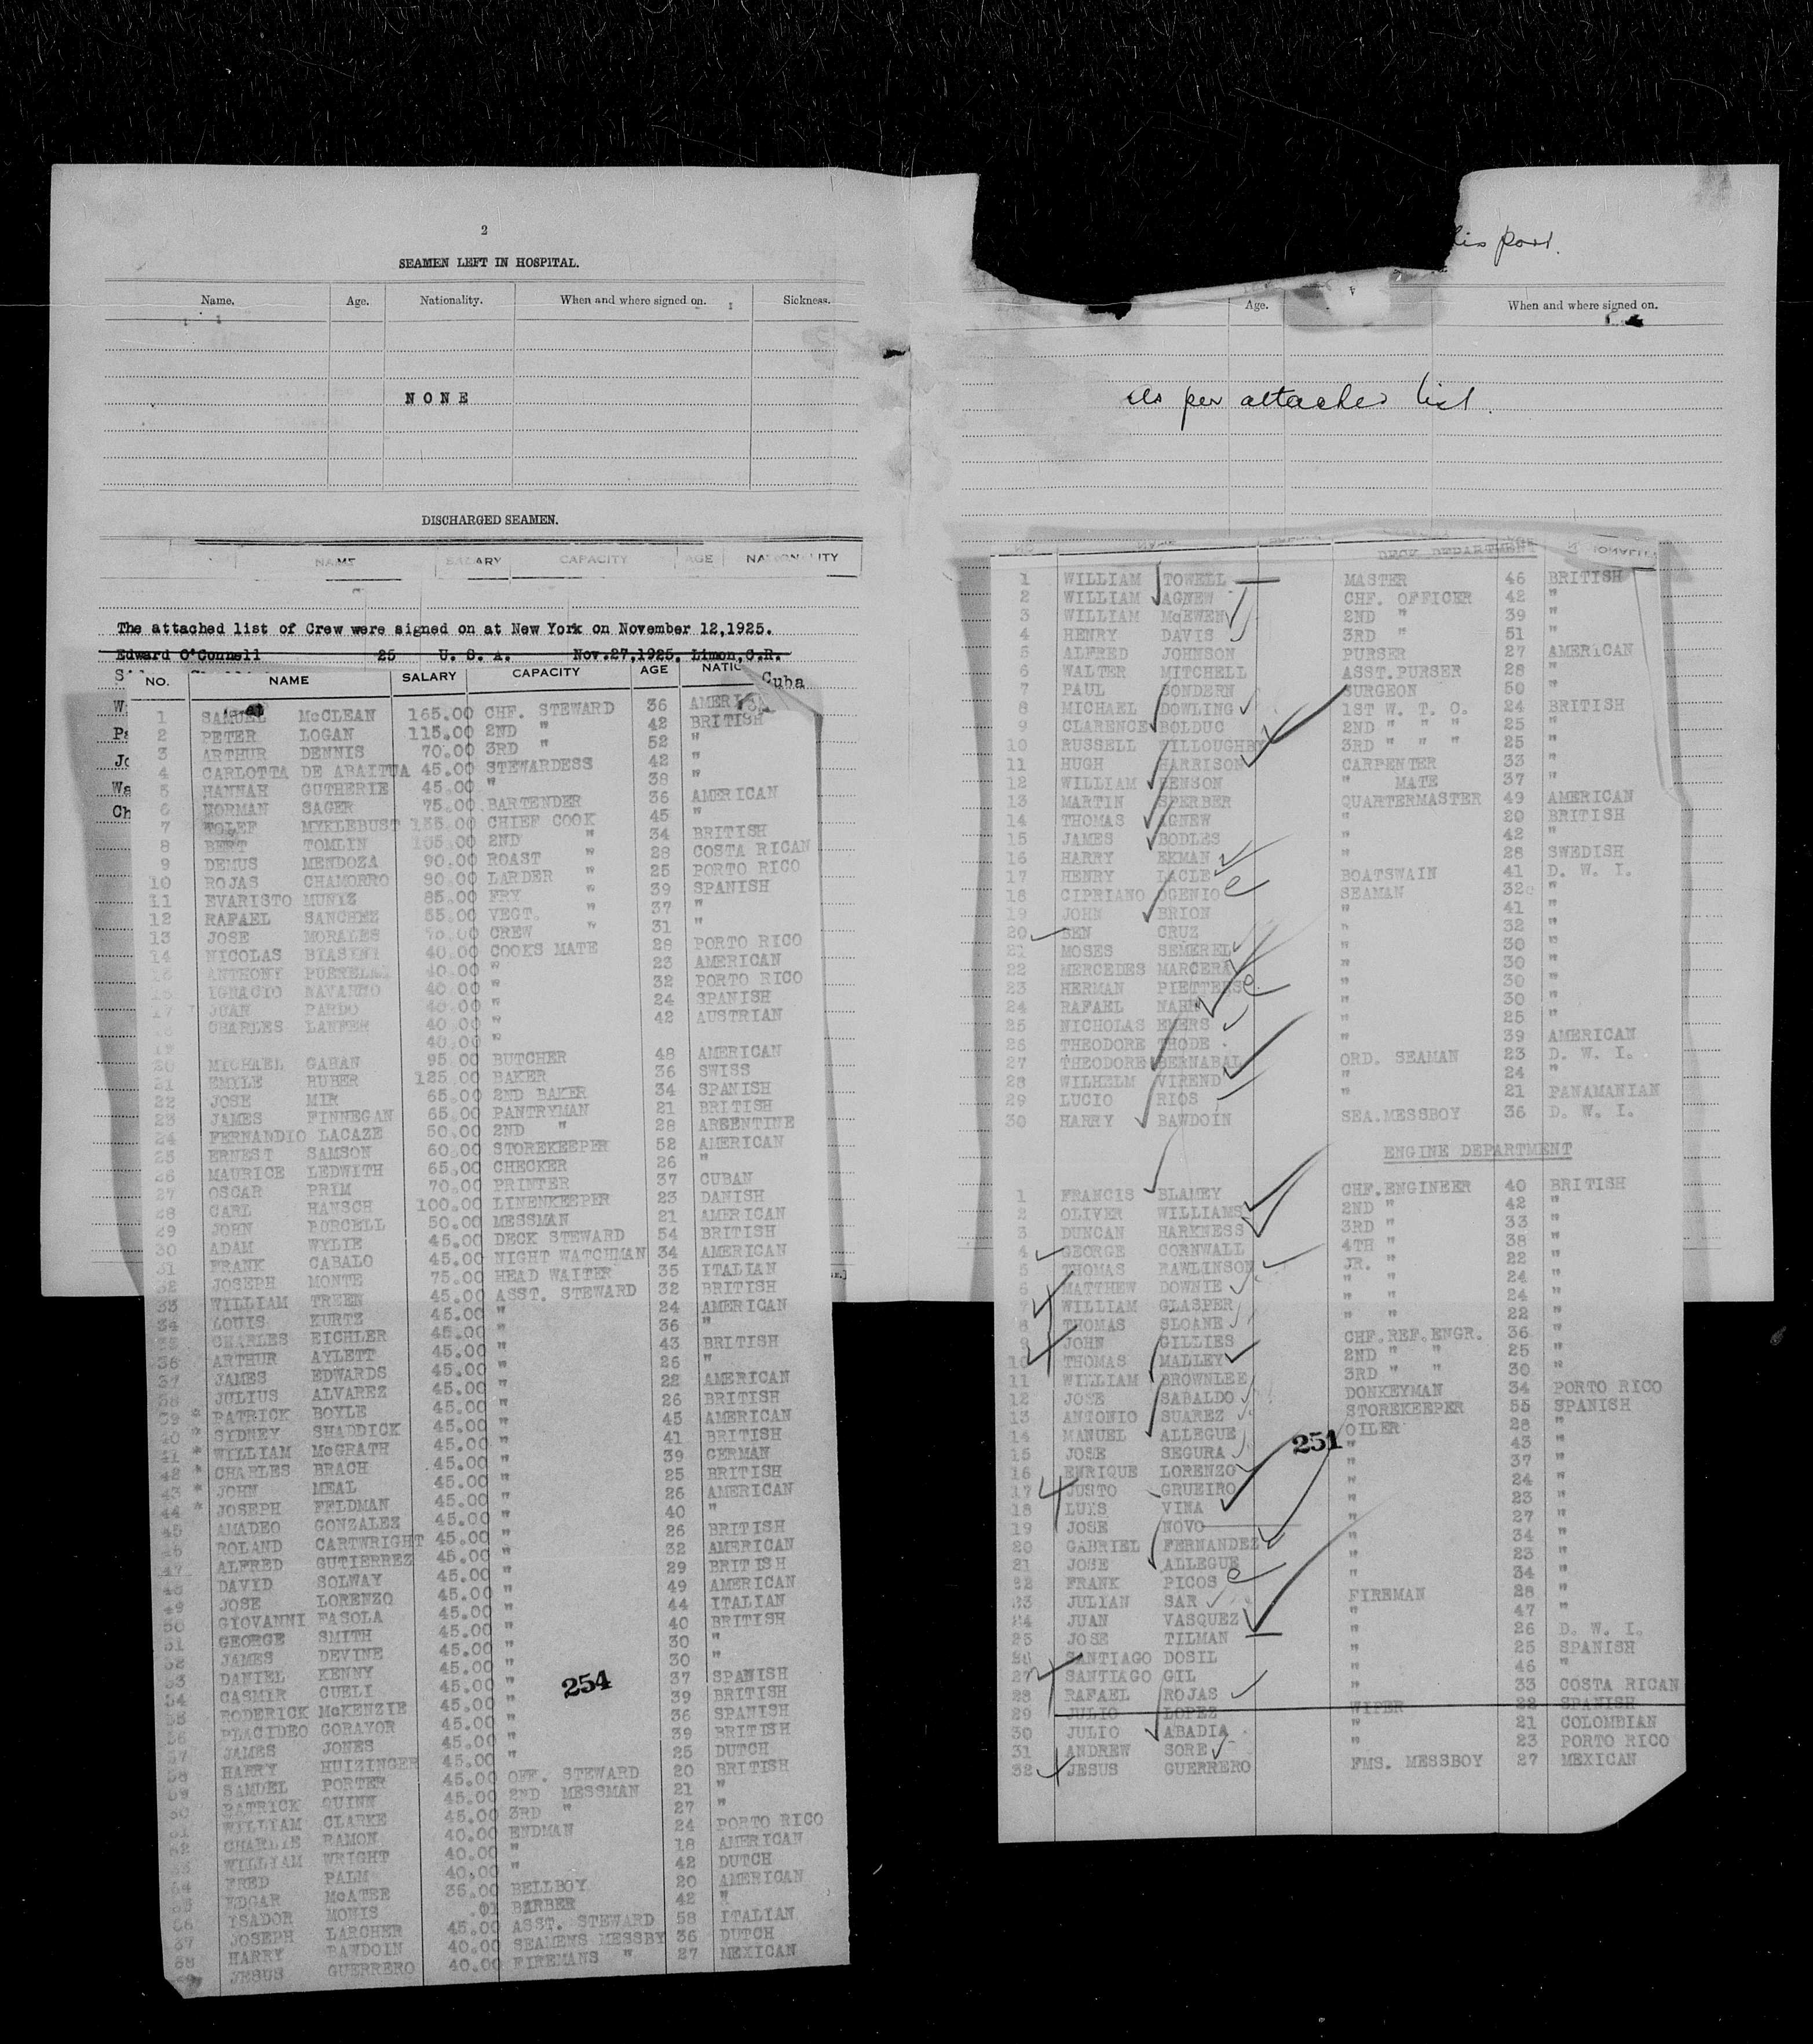 2
SEAMEN LEFT IN HOSPITAL.
Name. Age. Nationality. When and where signed on. Sickness.
NONE
DISCHARGED SEAMEN.
NAME SALARY CAPACITY AGE NATIONALITY
The attached list of Crew were signed on at New York on November 12,1925.
Edward O'Connell 25 U. S. A. Nov.27,1925. Limon,C.R.
Cuba
NO. NAME SALARY CAPACITY AGE
1 SAMUEL McCLEAN 165.00 CHF. STEWARD 36
2 PETER LOGAN 115.00 2ND " 42 BRITISH
3 ARTHUR DENNIS 70.00 3RD " 52 "
4 CARLOTTA DE ARAITUA 45.00 STEWARDESS 42 "
5 HANNAH GUTHERIE 45.00 " 38 "
6 NORMAN SAGER 75.00 BARTENDER 36 AMERICAN
7 MYKLEBUST CHIEF COOK 45 "
8 BERT TOMLIN 2ND " 34 BRITISH
9 DEMUS MENDOZA 90.00 ROAST " 28 COSTA RICAN
10 ROJAS CHAMORRO 90.00 LARDER " 25 PORTO RICO
11 EVARISTO MUNIZ 85.00 FRY " 39 SPANISH
12 RAFAEL SANCHEZ 55.00 VEGT. " 37 "
13 JOSE MORALES CREW " 31 "
14 NICOLAS BIASINI 40.00 COOKS MATE 28 PORTO RICO
ANTHONY 40.00 " 23 AMERICAN
IGNACIO NAVARRO 40.00 " 32 PORTO RICO
17 JUAN PARDO 40.00 " 24 SPANISH
CHARLES LANFER 40.00 " 42 AUSTRIAN
19 40.00 "
20 MICHAEL GAHAN 95.00 BUTCHER 48 AMERICAN
21 EMILE HUBER 125.00 BAKER 36 SWISS
22 JOSE MIR 65.00 2ND BAKER 34 SPANISH
23 JAMES FINNEGAN 65.00 PANTRYMAN 21 BRITISH
24 FERNANDIO LACAZE 50.00 2ND " 28 ARGENTINE
25 ERNEST SAMSON 60.00 STOREKEEPER 52 AMERICAN
26 MAURICE LEDWITH 65.00 CHECKER 26 "
27 OSCAR PRIM 70.00 PRINTER 37 CUBAN
28 CARL HANSCH 100.00 LINENKEEPER 23 DANISH
29 JOHN PURCELL 50.00 MESSMAN 21 AMERICAN
30 ADAM WYLIE 45.00 DECK STEWARD 54 BRITISH
31 FRANK CABALO 45.00 NIGHT WATCHMAN 34 AMERICAN
32 JOSEPH MONTE 75.00 HEAD WAITER 35 ITALIAN
33 WILLIAM TREEN 45.00 ASST. STEWARD 32 BRITISH
34 LOUIS KURTZ 45.00 " 24 AMERICAN
35 CHARLES EICHLER 45.00 " 36 "
36 ARTHUR AYLETT 45.00 " 43 BRITISH
37 JAMES EDWARDS 45.00 " 25 "
38 JULIUS ALVAREZ 45.00 " 22 AMERICAN
39 * PATRICK BOYLE 45.00 " 26 BRITISH
40 * SYDNEY SHADDICK 45.00 " 45 AMERICAN
41 * WILLIAM McGRATH 45.00 " 41 BRITISH
42 * CHARLES BRACH 45.00 " 39 GERMAN
43 * JOHN MEAL 45.00 " 25 BRITISH
44 * JOSEPH FELDMAN 45.00 " 26 AMERICAN
45 AMADEO GONZALEZ 45.00 " 40 "
46 ROLAND CARTWRIGHT 45.00 " 26 BRITISH
47 ALFRED GUTIERREZ 45.00 " 32 AMERICAN
48 DAVID SOLWAY 45.00 " 29 BRITISH
49 JOSE LORENZO 45.00 " 49 AMERICAN
50 GIOVANNI FASOLA 45.00 " 44 ITALIAN
51 GEORGE SMITH 45.00 " 40 BRITISH
52 JAMES DEVINE 45.00 " 30 "
53 DANIEL KENNY 45.00 " 30 "
54 CASMIR CUELI 45.00 " 37 SPANISH
55 RODERICK McKENZIE 45.00 " 39 BRITISH
56 PLACIDEO GORAYOR 45.00 " 36 SPANISH
57 JAMES JONES 45.00 " 39 BRITISH
58 HARRY HUIZINGER 45.00 " 25 DUTCH
59 SAMUEL PORTER 45.00 OFF. STEWARD 20 BRITISH
60 PATRICK QUINN 45.00 2ND MESSMAN 21 "
61 WILLIAM CLARKE 45.00 3RD " 27 "
62 CHARLIE RAMON 40.00 ENDMAN 24 PORTO RICO
63 WILLIAM WRIGHT 40.00 " 18 AMERICAN
64 FRED PALM 40.00 " 42 DUTCH
65 EDGAR McATEE 35.00 BELLBOY 20 AMERICAN
66 ISADOR MONIS .01 BARBER 42 "
67 JOSEPH LARCHER 45.00 ASST. STEWARD 58 ITALIAN
68 HARRY BAWDOIN 40.00 SEAMENS MESSBY 36 DUTCH
69 JESUS GUERRERO 40.00 FIREMANS " 27 MEXICAN
254
port.
Age. When and where signed on.
As per attached list.
DECK DEPARTMENT
1 WILLIAM TOWELL MASTER 46 BRITISH
2 WILLIAM AGNEW CHF. OFFICER 42 "
3 WILLIAM McEWEN 2ND " 39 "
4 HENRY DAVIS 3RD " 51 "
5 ALFRED JOHNSON PURSER 27 AMERICAN
6 WALTER MITCHELL ASST.PURSER 28 "
7 PAUL SONDERN SURGEON 50 "
8 MICHAEL DOWLING 1ST W. T. O. 24 BRITISH
9 CLARENCE BOLDUC 2ND " " " 25 "
10 RUSSELL WILLOUGHBY 3RD " " " 25 "
11 HUGH HARRISON CARPENTER 33 "
12 WILLIAM BENSON " MATE 37 "
13 MARTIN SPERBER QUARTERMASTER 49 AMERICAN
14 THOMAS AGNEW " 20 BRITISH
15 JAMES BODLES " 42 "
16 HARRY EKMAN " 28 SWEDISH
17 HENRY LACLE BOATSWAIN 41 D. W. I.
18 CIPRIANO OGENIO SEAMAN 32 "
19 JOHN BRION " 41 "
20 BEN CRUZ " 32 "
21 MOSES SEMEREL " 30 "
22 MERCEDES MARCERA " 30 "
23 HERMAN PIETTERS " 30 "
24 RAFAEL NAHR " 30 "
25 NICHOLAS EVERS " 25 "
26 THEODORE THODE " 39 AMERICAN
27 THEODORE BERNABAL ORD. SEAMAN 23 D. W. I.
28 WILHELM VIREND " 24 "
29 LUCIO RIOS " 21 PANAMANIAN
30 HARRY BAWDOIN SEA.MESSBOY 36 D. W. I.
ENGINE DEPARTMENT
1 FRANCIS BLAMEY CHF.ENGINEER 40 BRITISH
2 OLIVER WILLIAMS 2ND " 42 "
3 DUNCAN HARKNESS 3RD " 33 "
4 GEORGE CORNWALL 4TH " 38 "
5 THOMAS RAWLINSON JR. " 22 "
6 MATTHEW DOWNIE " " 24 "
7 WILLIAM GLASPER " " 24 "
8 THOMAS SLOANE " " 22 "
9 JOHN GILLIES CHF.REF.ENGR. 36 "
10 THOMAS MALLEY 2ND " " 25 "
11 WILLIAM BROWNLEE 3RD " " 30 "
12 JOSE SABALDO DONKEYMAN 34 PORTO RICO
13 ANTONIO SUAREZ STOREKEEPER 55 SPANISH
14 MANUEL ALLEGUE OILER 28 "
15 JOSE SEGURA " 43 "
16 ENRIQUE LORENZO " 37 "
17 JUSTO GRUEIRO " 24 "
18 LUIS VINA " 23 "
19 JOSE NOVO " 27 "
20 GABRIEL FERNANDEZ " 34 "
21 JOSE ALLEGUE " 23 "
22 FRANK PICOS " 34 "
23 JULIAN SAR FIREMAN 28 "
24 JUAN VASQUEZ " 47 "
25 JOSE TILMAN " 26 D. W. I.
26 SANTIAGO DOSIL " 25 SPANISH
27 SANTIAGO GIL " 46 "
28 RAFAEL ROJAS " 33 COSTA RICAN
29 JULIO LOPEZ WIPER 22 SPANISH
30 JULIO ABADIA " 21 COLOMBIAN
31 ANDREW SORE " 23 PORTO RICO
32 JESUS GUERRERO FMS. MESSBOY 27 MEXICAN
251